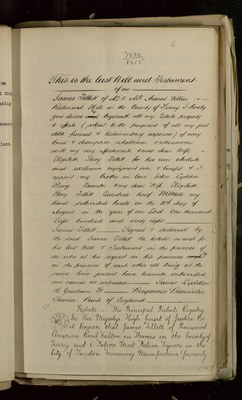 This is the last Will and Testament
of me
James Tillett of No 5 Mt Ararat Villas
Richmond Hill in the County of Surrey I hereby
give devise Bequeath all my Estate property
& effects (subject to the payment of all my just
debts funeral & testamentary expenses) of every
kind & description whatsoever & wheresoever
unto my very affectionate and dear Wife
Elizabeth Mary Tillett for her own absolute
and exclusive enjoyment use & benefit & I
appoint my brother in law
and my dear Wife Elizabeth
Mary Tillett Executors hereof Witness my
hand subscribed hereto on the day of
August in the year of our Lord One thousand
Eight hundred and sixty eight
James Tillett Signed & declared by
the said James Tillett the testator as and for
his last Will & Testament in the presence of
us who at his request in his presence and
in the presence of each other all being at the
same time present have hereunto subscribed
our names as witnesses
Benjamin
Bank of England
Probate The Principal Probate Registry
In Her Majesty's High Court of Justice Be
it known that James Tillett of
Road in the County of
Surrey and 2 Falcon Street Falcon Square in the
City of London Manufacturer formerly